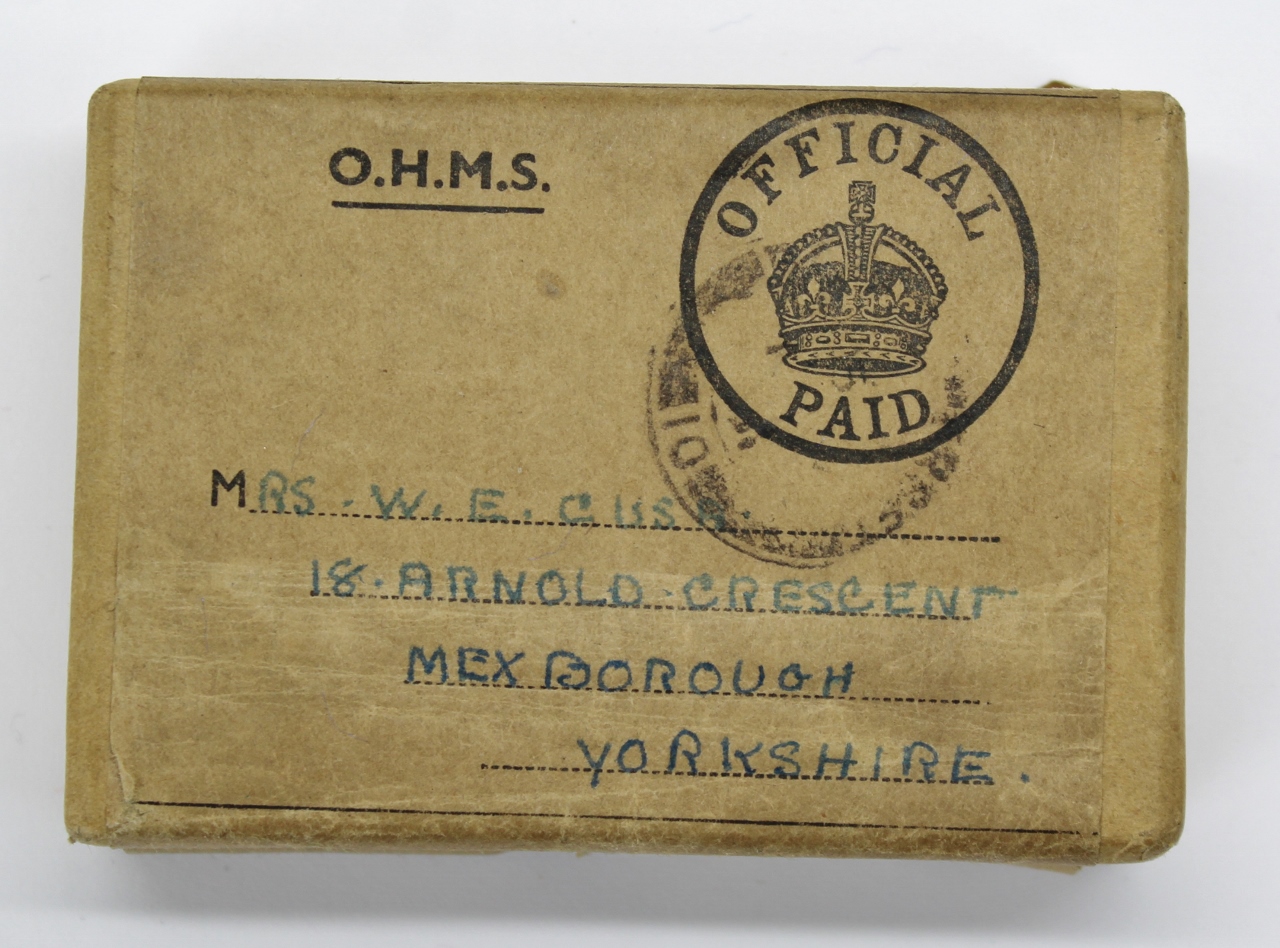 O.H.M.S.
OFFICIAL
PAID
MRS. W. E.
18. ARNOLD CRESCENT
MEXBOROUGH
YORKSHIRE.